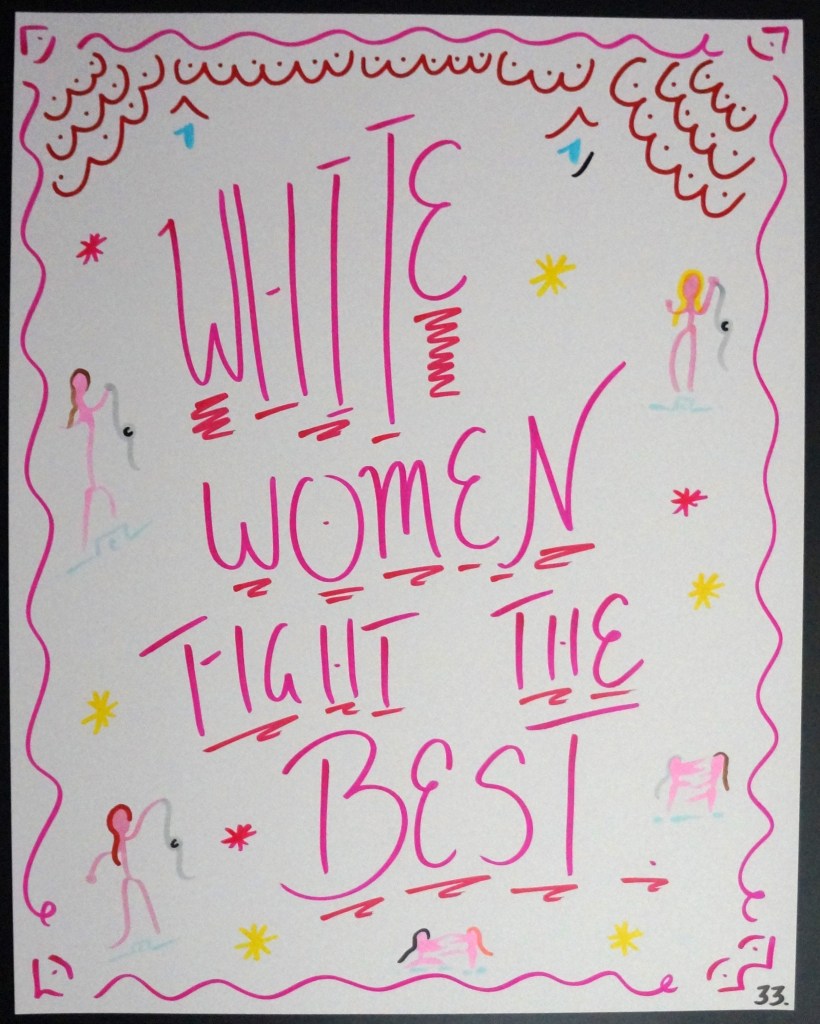 WHITE
WOMEN
FIGHT THE
BEST.
33.